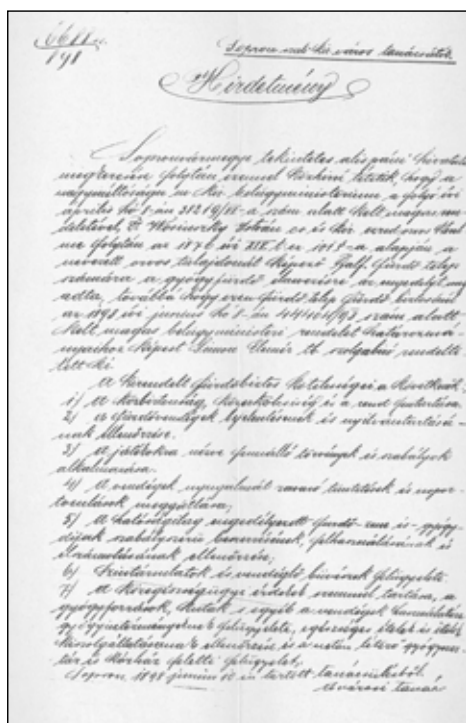 6611 sz.
898
Sopron szab. kir. város tanácsától.
Hirdetmény
Sopronvármegye tekintetes alispáni hivatala
megkeresése folytán ezennel közhírré tétetik, hogy a
nagyméltóságu m. kir. belügyministerium a folyó évi
április hó 8-án szám alatt kelt magas ren-
deletével, Dr. István cs. és kir. ezred orvos
folytán az 1876 évi XIV. t. cz. §-a alapján a
nevezett orvos tulajdonát képező Balf fürdő telep
számára a gyógyfürdő az engedélyt meg
adta, továbbá hogy ezen fürdő telep fürdő biztosául
az 1898 évi junius hó 8-án szám alatt
kelt magas belügyministeri rendelet határozmá-
nyaihoz képest Simon Elemér tb. szolgabiró rendelte-
tett ki.
A kirendelt fürdőbiztos kötelességei a következők:
1) a közbiztonság, közerkölcsiség és a rend fentartása.
2) a fürdővendégek bejelentésének és nyilvántartásá-
nak ellenőrzése.
3) A játékokra nézve fennálló törvények és szabályok
alkalmazása.
4) A vendégek nyugalmát zavaró tüntetések és csopor-
tosulások meggátlása;
5) A hatóságilag engedélyezett fürdő- zene és gyógy-
dijak szabályszerü beszedésének, felhasználásának és
elszámolásának ellenőrzése;
6) Szintársulatok és vendéglő felügyelete
7) A közegészségügy érdekeit szemmel tartása, a
gyógyforrások, kutak s egyéb a vendégek használatára
felügyelete, egészséges ételek és italok
kiszolgáltatásának ellenőrzése és a netán létező gyógyszer-
tár és kórház feletti felügyelet.
Sopron, 1898 junius tartott tanácsülésből.
A városi tanács